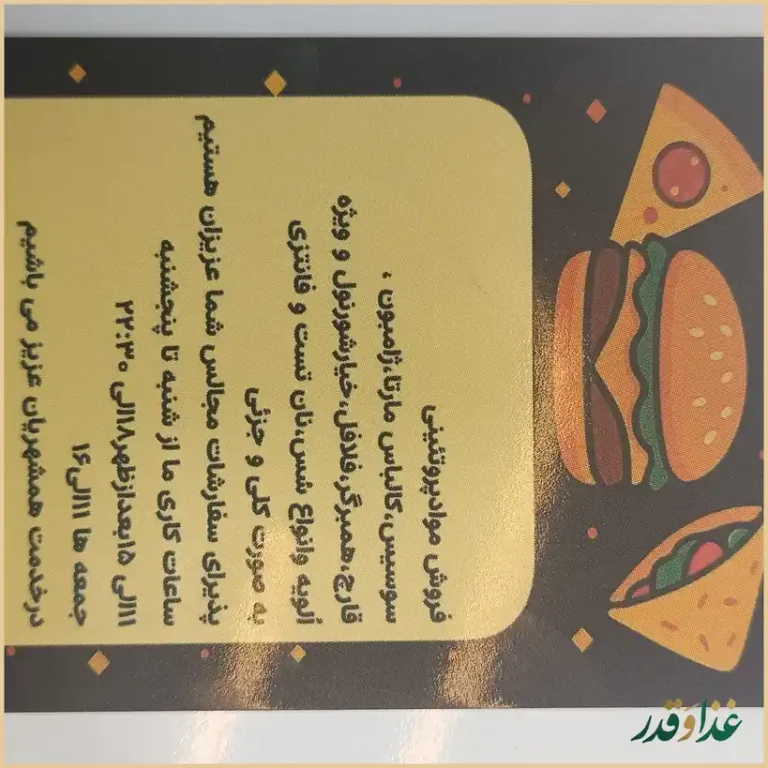 فروش موادپروتئینی
سوسیس،کالباس مارتا،ژامبون ،
قارچ،همبرگر،فلافل،خیارشورنول و ویژه
ألویه وانواع سس،نان تست و فانتزی
به صورت کلی و جزئی
پذیرای سفارشات مجالس شما عزیزان هستیم
ساعات کاری ما از شنبه تا پنجشنبه
۱۱الی ۱۵بعدازظهر۱۸الی ۲۲:۳۰
جمعه ها ۱۱الی۱۶
درخدمت همشهریان عزیز می باشیم
غذا و قدر